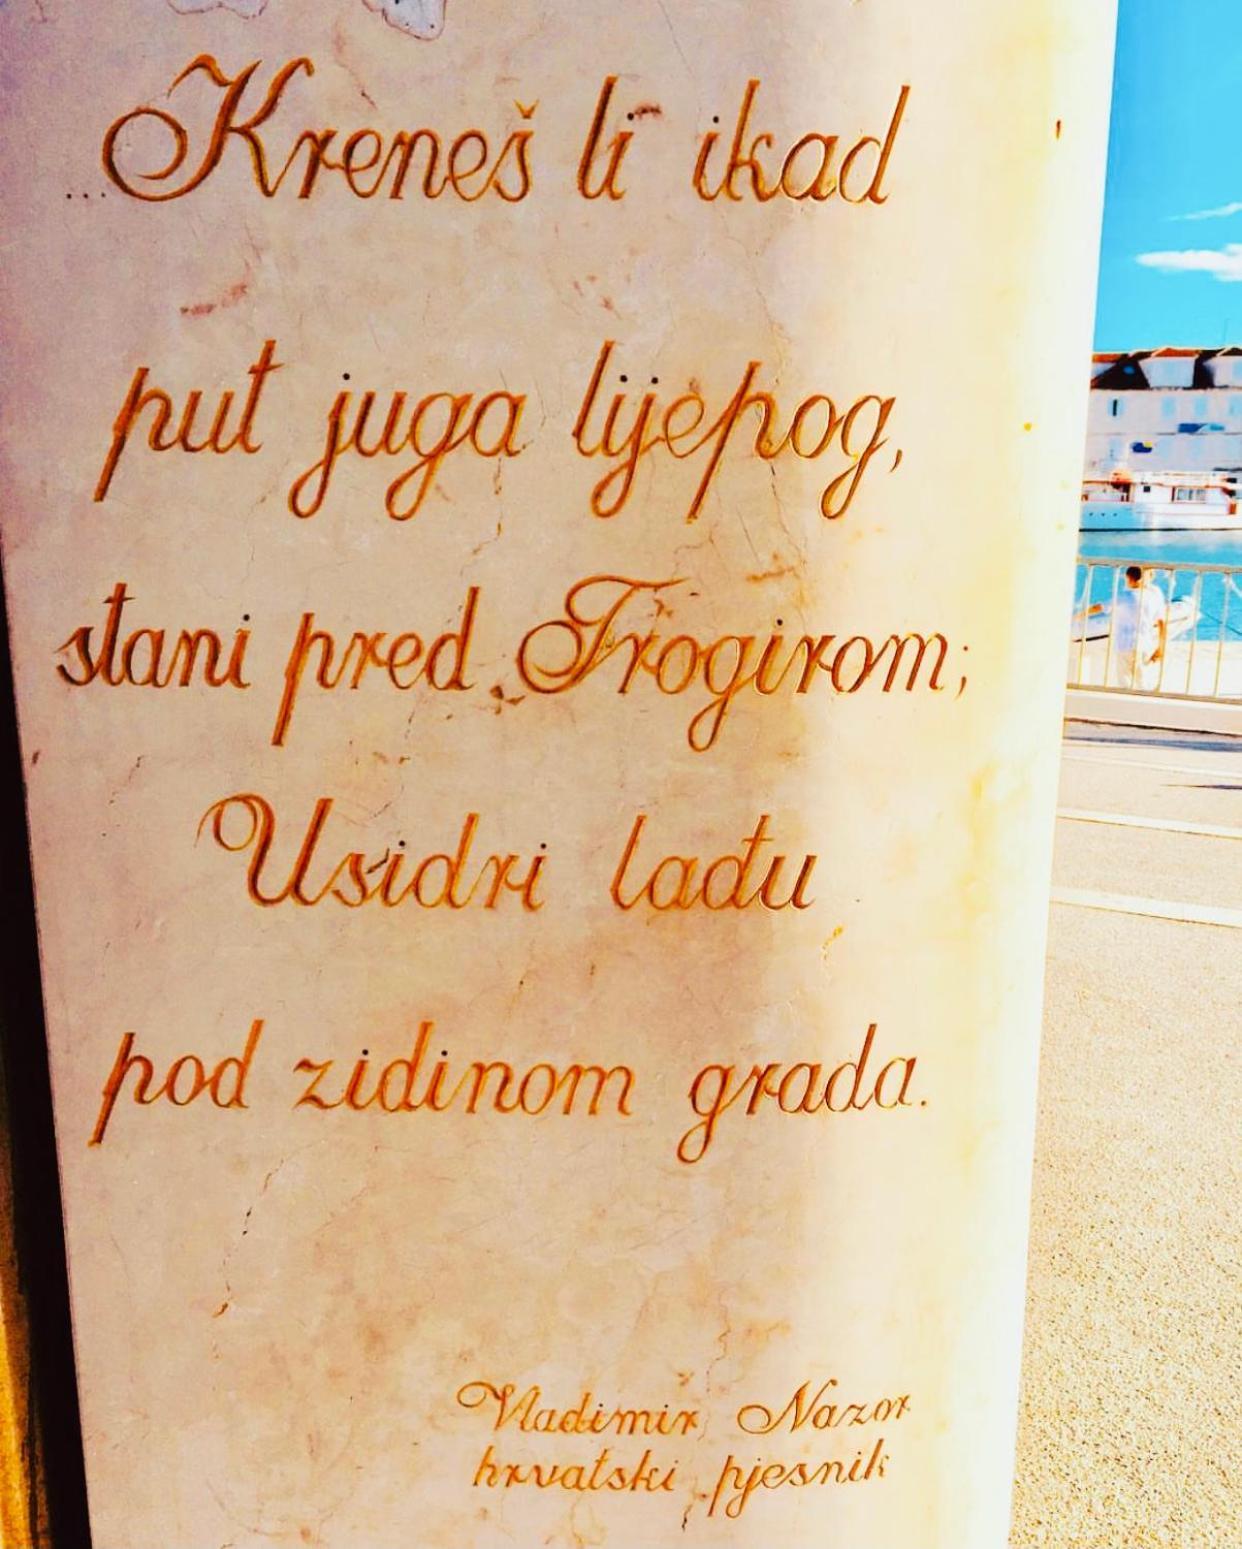 ...Kreneš li ikad
put juga lijepog,
stani pred Trogirom;
Usidri lađu
pod zidinom grada.
Vladimir Nazor
hrvatski pjesnik